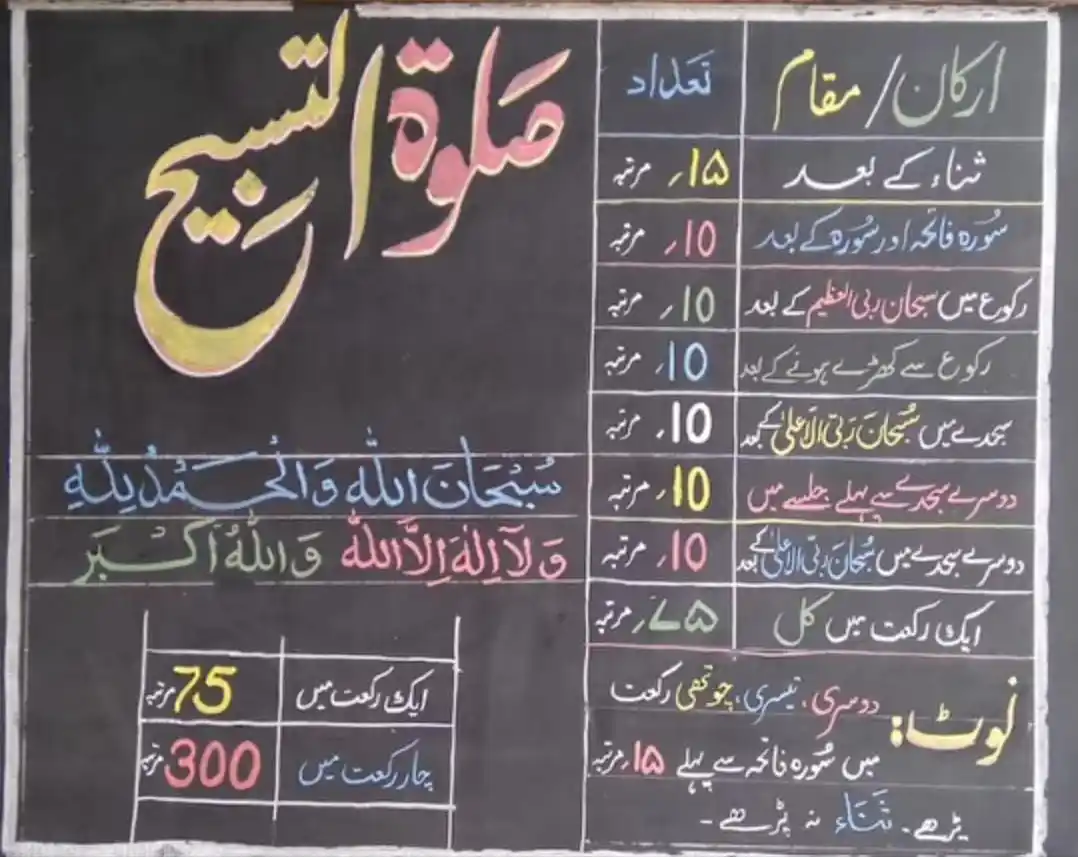 صلوٰۃ التسبیح
سُبْحَانَ اللّٰهِ وَالْحَمْدُ لِلّٰهِ
وَلَآ اِلٰهَ اِلَّا اللّٰهُ وَاللّٰهُ اَكْبَر
ایک رکعت میں 75 مرتبہ
چار رکعت میں 300 مرتبہ
ارکان/مقام تعداد
ثناء کے بعد ۱۵؍ مرتبہ
سُورہ فاتحہ اور سُورہ کے بعد 10؍ مرتبہ
رکوع میں سبحان ربی العظیم کے بعد 10؍ مرتبہ
رکوع سے کھڑے ہونے کے بعد 10؍ مرتبہ
سجدے میں سُبْحَانَ رَبِّیَ الْاَعْلیٰ کے بعد 10؍ مرتبہ
دوسرے سجدے سے پہلے جلسے میں 10؍ مرتبہ
دوسرے سجدے میں سُبْحَانَ رَبِّیَ الْاَعْلیٰ کے بعد 10؍ مرتبہ
ایک رکعت میں کل ۷۵؍ مرتبہ
نوٹ: دوسری، تیسری، چوتھی رکعت
میں سُورہ فاتحہ سے پہلے ۱۵؍ مرتبہ
پڑھے۔ ثَنَاء نہ پڑھے۔